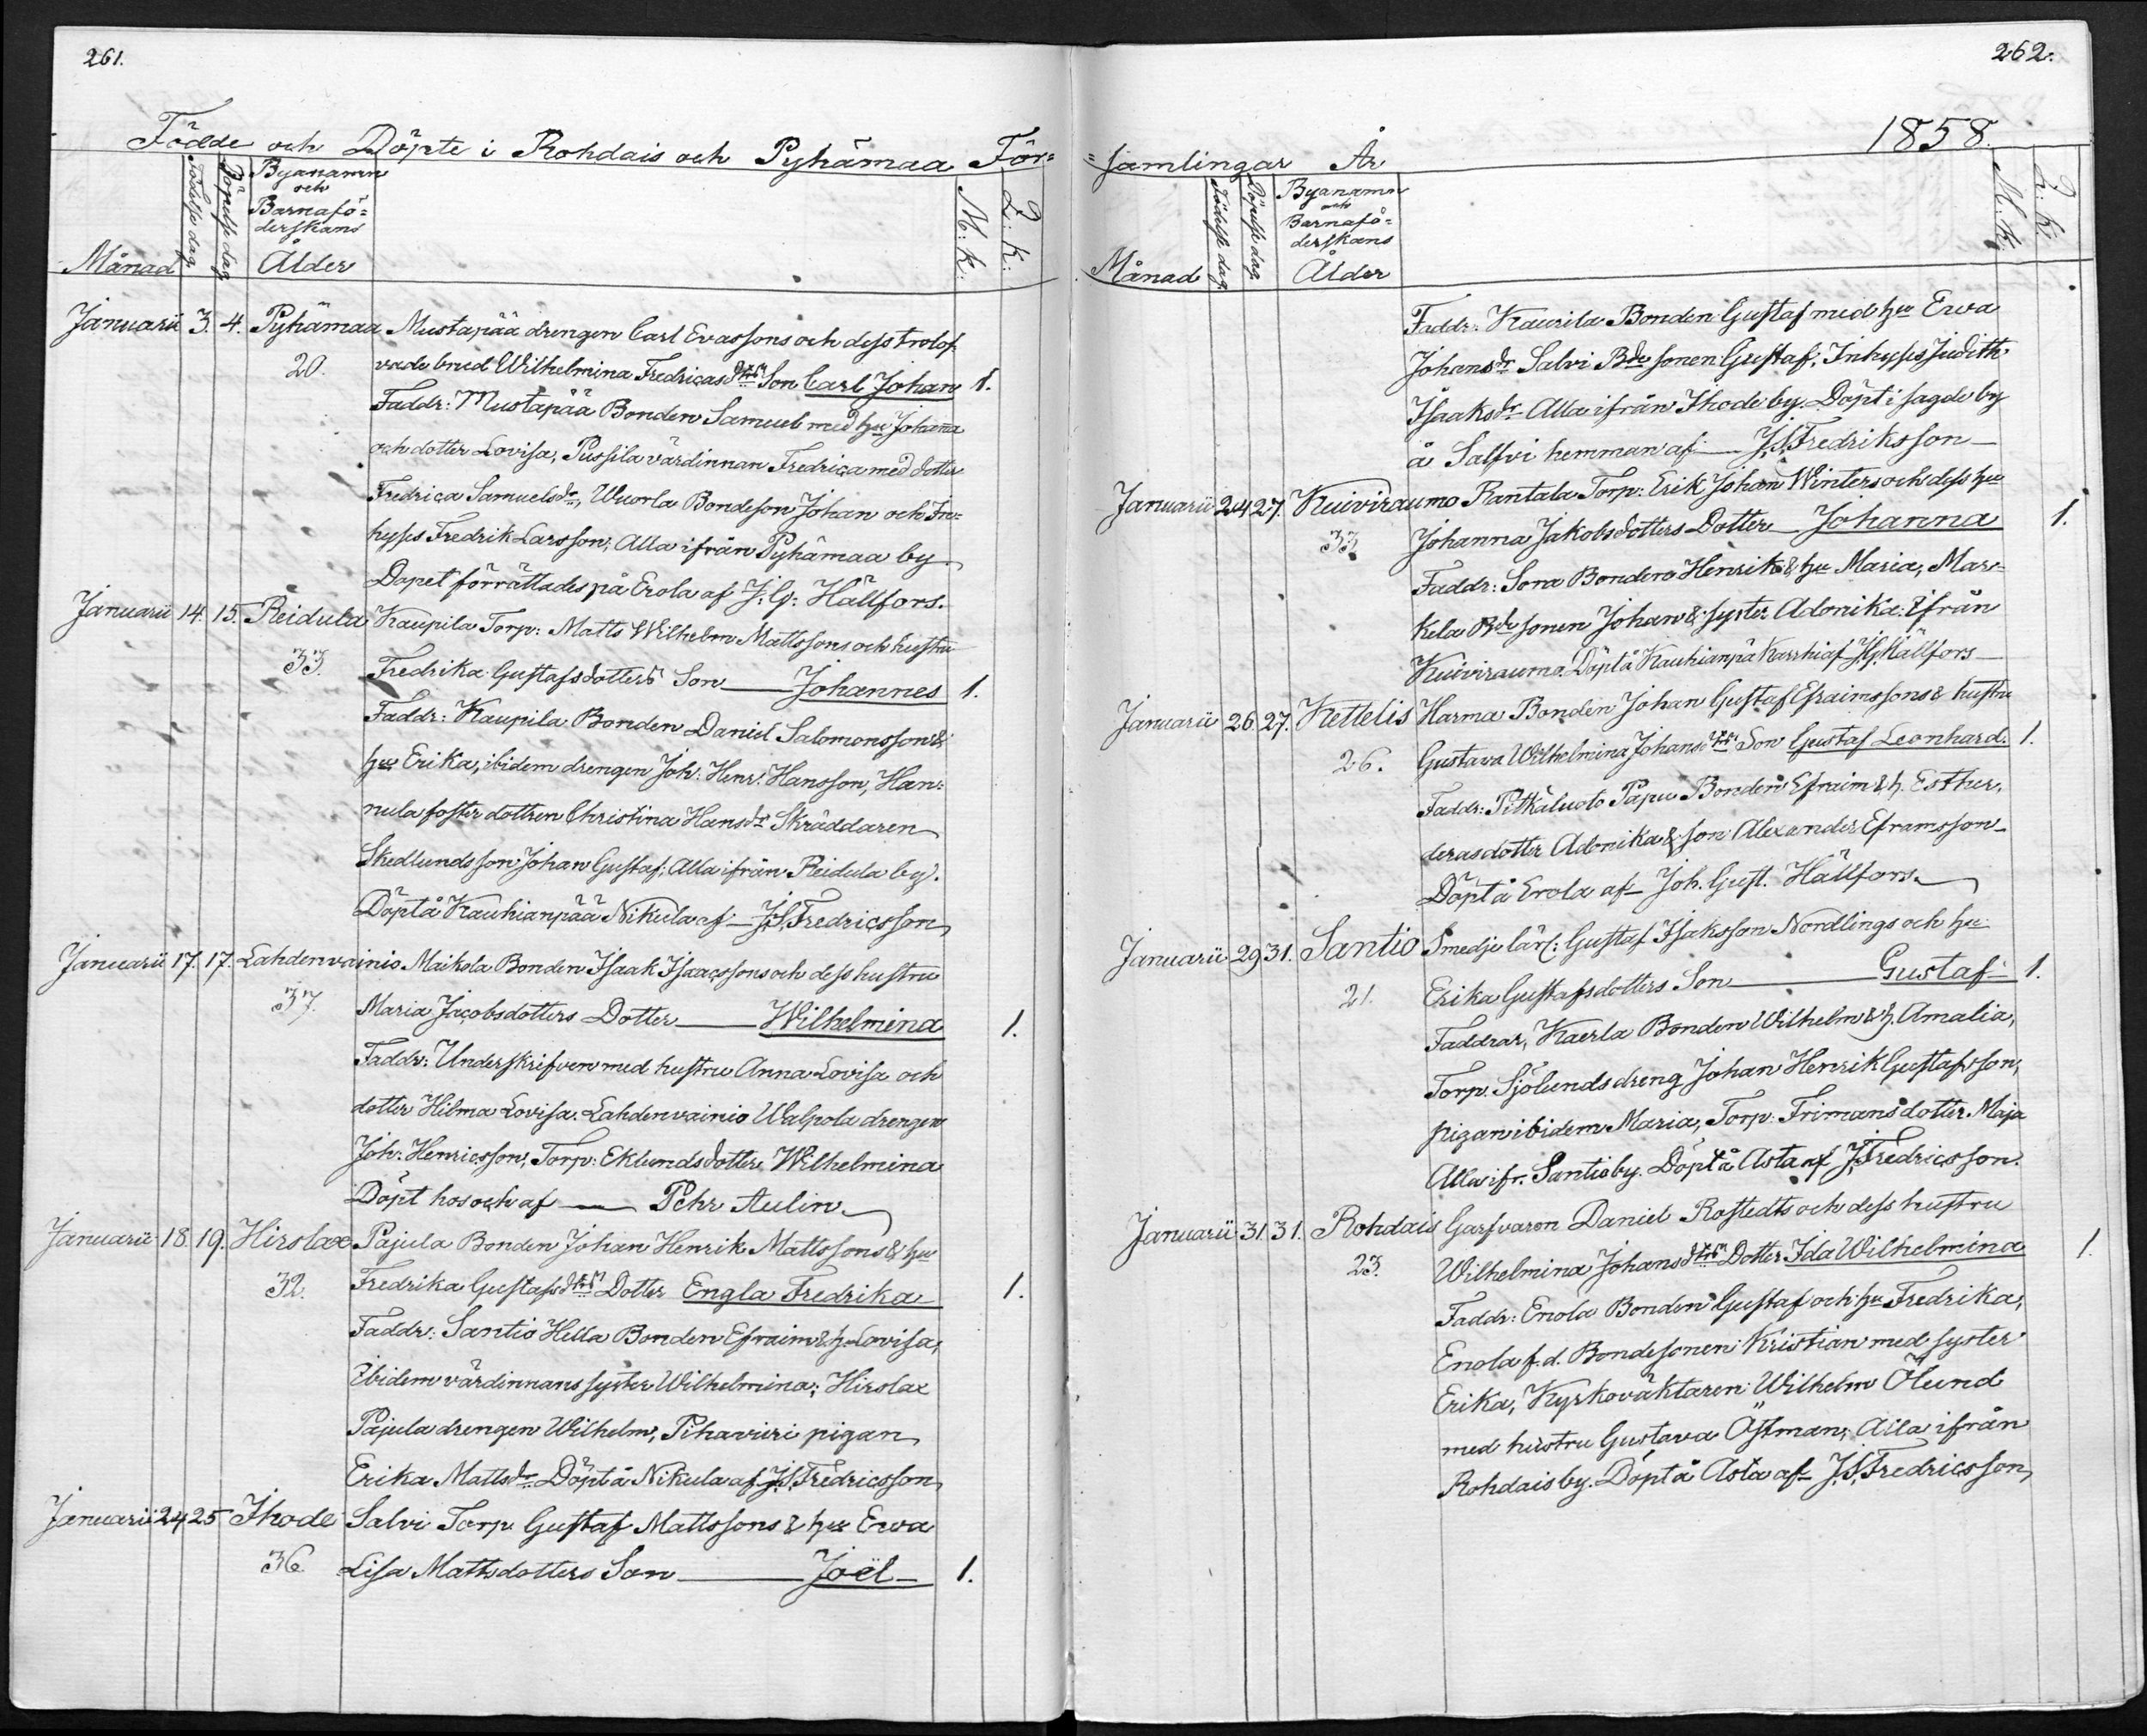 261.
Födde och Döpte i Rohdais och Pyhämaa För=
Månad
Födelse dag.
Döpelse dag.
Byanamn
och
Barnafö=
derskans
Ålder
M: k:
Q: k:
Januarii 3. 4. Pyhämaa Mustapää drengen Carl Evassons och dess trolof-
20. vade brud Wilhelmina Fredricas dtrs Son Carl Johan 1.
Faddr: Mustapää Bonden Samuel med hu Johanna
och dotter Lovisa, Pussila värdinnan Fredrica med dotter
Fredrica Samuelsdr, Wuorla Bondeson Johan och In=
hyses Fredrik Larsson; Alla ifrån Pyhämaa by
Dopet förrättades på Erola af J: G: Hällfors.
Januarii 14. 15. Reidula Kaupila Torp: Matts Wilhelm Mattssons och hustru
33. Fredrika Gustafsdotters Son — Johannes 1.
Faddr: Kaupila Bonden Daniel Salomonsson &
hu Erika, ibidem drengen Joh: Henr: Hansson, Han=
nula foster dottren Christina Hansdr Skräddaren
Skedlunds son Johan Gustaf; Alla ifrån Reidula by.
Döpt å Kauhianpää Nikula af — J.S. Fredricsson
Januarii 17. 17. Lahdenvainio Maikola Bonden Isaak Isaacssons och dess hustru
37. Maria Jacobsdotters Dotter — Wilhelmina 1.
Faddr: Underskrifven med hustru Anna Lovisa och
dotter Hilma Lovisa. Lahdenvainio Walpola drengen
Joh: Henricsson, Torp: Eklunds dotter Wilhelmina
Döpt hos och af — Pehr Aulin
Januarii 18. 19. Hirslax Pajula Bonden Johan Henrik Mattssons & hu
32. Fredrika Gustafsdtrs Dotter Engla Fredrika 1.
Faddr: Santio Hella Bonden Efraim & h. Lovisa,
Ibidem värdinnans syster Wilhelmina; Hirslax
Pajula drengen Wilhelm, Pihavuri pigan
Erika Mattsdr Döpt å Nikula af J.S. Fredricsson
Januarii 24 25 Ihode Salvi Torp. Gustaf Mattssons & hu Ewa
36. Lisa Mattsdotters Son — Joël 1.
262.
=samlingar År 1858.
Månad
Födelse dag.
Döpelse dag.
Byanamn
och
Barnafö=
derskans
Ålder
M: k:
Q: k:
Faddr: Kaurila Bonden Gustaf med hu Ewa
Johansdr Salvi Bde sonen Gustaf; Inhyses Judith
Isaaksdr Alla ifrån Ihode by. Döpt i sagde by
å Salfvi hemman af — J.S. Fredriksson
Januarii 24 27. Kuiviraumo Rantala Torp: Erik Johan Winters och dess hu
33 Johanna Jakobsdotters Dotter Johanna 1.
Faddr: Sona Bonden Henrik & hu Maria, Mar=
kela Bde sonen Johan & syster Adonika: Ifrån
Kuiviraumo. Döpt å Kauhianpä Karrhi af J.G. Hällfors
Januarii 26. 27. Kettelis Harma Bonden Johan Gustaf Efraimssons & hustru
26. Gustava Wilhelmina Johansdtrs Son Gustaf Leonhard. 1.
Faddr: Pitkäluoto Papu Bonden Efraim & h. Esther,
deras dotter Adonika & son Alexander Eframsson
Döpt å Erola af Joh. Gust. Hällfors
Januarii 29 31. Santio Smedje lärl: Gustaf Isaksson Nordlings och hu
21. Erika Gustafsdotters Son — Gustaf 1.
Faddrar, Kaerla Bonden Wilhelm & h. Amalia,
Torp. Sjölunds dreng Johan Henrik Gustafsson,
pigan ibidem Maria, Torp. Frimans dotter Maja
Alla ifr. Santio by. Döpt å Asta af J. Fredricsson.
Januarii 31. 31. Rohdais Garfvaren Daniel Rostedts och dess hustru
23. Wilhelmina Johansdtrs Dotter Ida Wilhelmina 1.
Faddr: Enola Bonden Gustaf och hu Fredrika,
Enola f.d. Bondesonen Kristian med syster
Erika, Kyrkoväktaren Wilhelm Ölund
med hustru Gustava Östman; Alla ifrån
Rohdais by. Döpt å Asta af J.S. Fredricsson